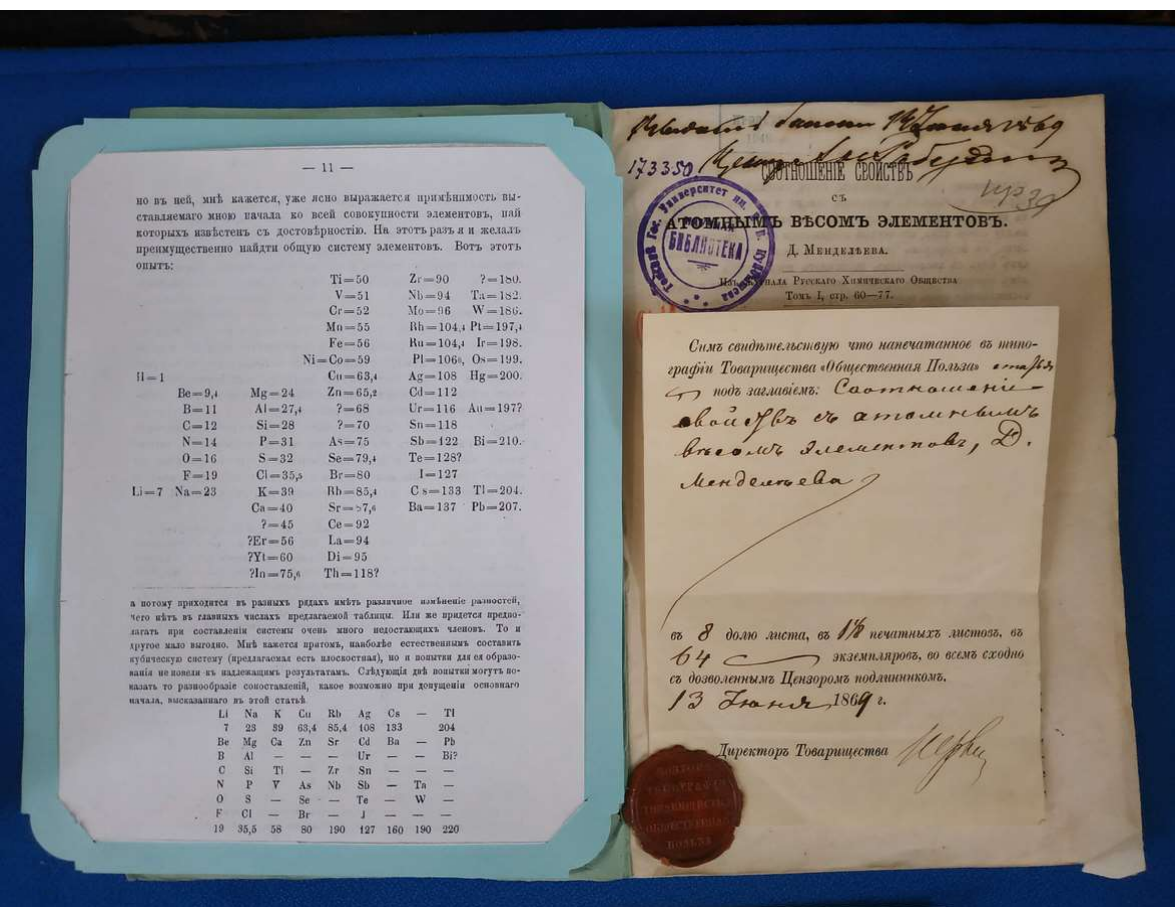 — 11 —
но въ ней, мнѣ кажется, уже ясно выражается примѣнимость вы-
ставляемаго мною начала ко всей совокупности элементовъ, пай
которыхъ извѣстенъ съ достовѣрностію. На этотъ разъ я и желалъ
преимущественно найдти общую систему элементовъ. Вотъ этотъ
опытъ:
Ti=50 Zr=90 ?=180.
V=51 Nb=94 Ta=182.
Cr=52 Mo=96 W=186.
Mn=55 Rh=104,4 Pt=197,4
Fe=56 Ru=104,4 Ir=198.
Ni=Co=59 Pl=1066, Os=199.
H=1 Cu=63,4 Ag=108 Hg=200.
Be=9,4 Mg=24 Zn=65,2 Cd=112
B=11 Al=27,4 ?=68 Ur=116 Au=197?
C=12 Si=28 ?=70 Sn=118
N=14 P=31 As=75 Sb=122 Bi=210.
O=16 S=32 Se=79,4 Te=128?
F=19 Cl=35,5 Br=80 I=127
Li=7 Na=23 K=39 Rb=85,4 Cs=133 Tl=204.
Ca=40 Sr=87,6 Ba=137 Pb=207.
?=45 Ce=92
?Er=56 La=94
?Yt=60 Di=95
?In=75,6 Th=118?
а потому приходится въ разныхъ рядахъ имѣть различное измѣненіе разностей,
чего нѣтъ въ главныхъ числахъ предлагаемой таблицы. Или же придется предпо-
лагать при составленіи системы очень много недостающихъ членовъ. То и
другое мало выгодно. Мнѣ кажется притомъ, наиболѣе естественнымъ составить
кубическую систему (предлагаемая есть плоскостная), но и попытки для ея образо-
ванія не повели къ надлежащимъ результатамъ. Слѣдующія двѣ попытки могутъ по-
казать то разнообразіе сопоставленій, какое возможно при допущеніи основнаго
начала, высказаннаго въ этой статьѣ
Li Na K Cu Rb Ag Cs — Tl
7 23 39 63,4 85,4 108 133 204
Be Mg Ca Zn Sr Cd Ba — Pb
B Al — — — Ur — — Bi?
C Si Ti — Zr Sn — — —
N P V As Nb Sb — Ta —
O S — Se — Te — W —
F Cl — Br — J — — —
19 35,5 58 80 190 127 160 190 220
1869
173350
СООТНОШЕНІЕ СВОЙСТВЪ
СЪ
АТОМНЫМЪ ВѢСОМЪ ЭЛЕМЕНТОВЪ.
Д. Менделѣева.
Изъ Журнала Русскаго Химическаго Общества
Томъ I, стр. 60—77.
Гос. Университет им. В. В. Куйбышева
БИБЛИОТЕКА
Симъ свидѣтельствую что напечатанное въ типо-
графіи Товарищества «Общественная Польза» статья
подъ заглавіемъ: Соотношеніе
свойствъ съ атомнымъ
вѣсомъ элементовъ, Д.
Менделѣева
въ 8 долю листа, въ 1⅛ печатныхъ листовъ, въ
64 экземпляровъ, во всемъ сходно
съ дозволеннымъ Цензоромъ подлинникомъ.
13 Іюня 1869 г.
Директоръ Товарищества
КОНТОРА
ТИПОГРАФІИ
ТОВАРИЩЕСТВА
ОБЩЕСТВЕННАЯ
ПОЛЬЗА